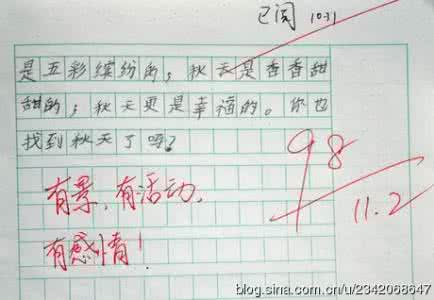 已阅 10.31
是五彩缤纷的，秋天是香香甜
甜的；秋天更是幸福的。你也
找到秋天了吗？
98
有景，有活动，
11.2
有感情！
blog.sina.com.cn/u/2342068647